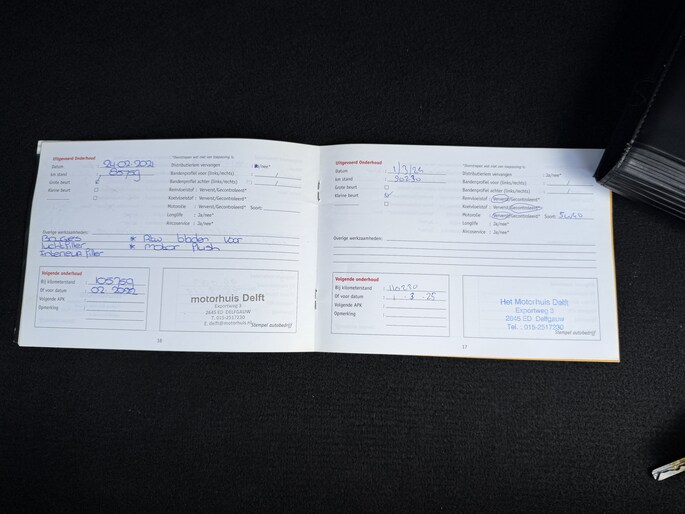 Uitgevoerd Onderhoud
Datum 24-02-2021
km stand 85759
Grote beurt
Kleine beurt
*Doorstrepen wat niet van toepassing is
Distributieriem vervangen
Bandenprofiel voor (links/rechts)
Bandenprofiel achter (links/rechts)
Remvloeistof : Ververst/Gecontroleerd*
Koelvloeistof : Ververst/Gecontroleerd*
Motorolie : Ververst/Gecontroleerd* Soort:
Longlife : Ja/nee*
Aircoservice : Ja/nee*
Overige werkzaamheden:
Bougies * Rtw bladen voor
luchtfilter * motor flush
Interieur filter
Volgende onderhoud
Bij kilometerstand : 105759
Of voor datum : 02 2022
Volgende APK :
Opmerking :
motorhuis Delft
Exportweg 3
2645 ED DELFGAUW
T. 015-2517230
Stempel autobedrijf
16
Uitgevoerd Onderhoud
Datum
km stand 90230
Grote beurt
Kleine beurt
*Doorstrepen wat niet van toepassing is
Distributieriem vervangen : Ja/nee*
Bandenprofiel voor (links/rechts)
Bandenprofiel achter (links/rechts)
Remvloeistof : Ververst/Gecontroleerd*
Koelvloeistof : Ververst/Gecontroleerd*
Motorolie : Ververst/Gecontroleerd* Soort: 5w30
Longlife : Ja/nee*
Aircoservice : Ja/nee*
Overige werkzaamheden:
Volgende onderhoud
Bij kilometerstand : 110230
Of voor datum : 1 - 3 - 25
Volgende APK :
Opmerking :
Het Motorhuis Delft
Exportweg 3
2645 ED Delfgauw
Tel.: 015-2517230
Stempel autobedrijf
17